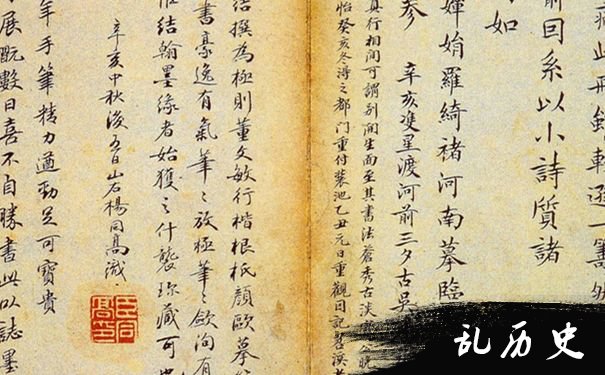 此飛
前回系以小詩質諸
如
嬋娟羅綺褚河南摹臨
參 辛亥雙星渡河前三夕古吳
真行相間可謂別開生面至其書法蒼秀古淡
怡癸亥冬得之都門重付裝池乙丑元日重觀因記苕溪
結撰為極則董文敏行楷根柢顏歐摹
書豪逸有氣筆〻放極筆〻斂洵有
結翰墨緣者始獲之什襲珍藏可
辛亥中秋後五日山石楊同高識
年手筆精力遒勁足可寶貴
展既數日喜不自勝書此以誌墨
乱历史